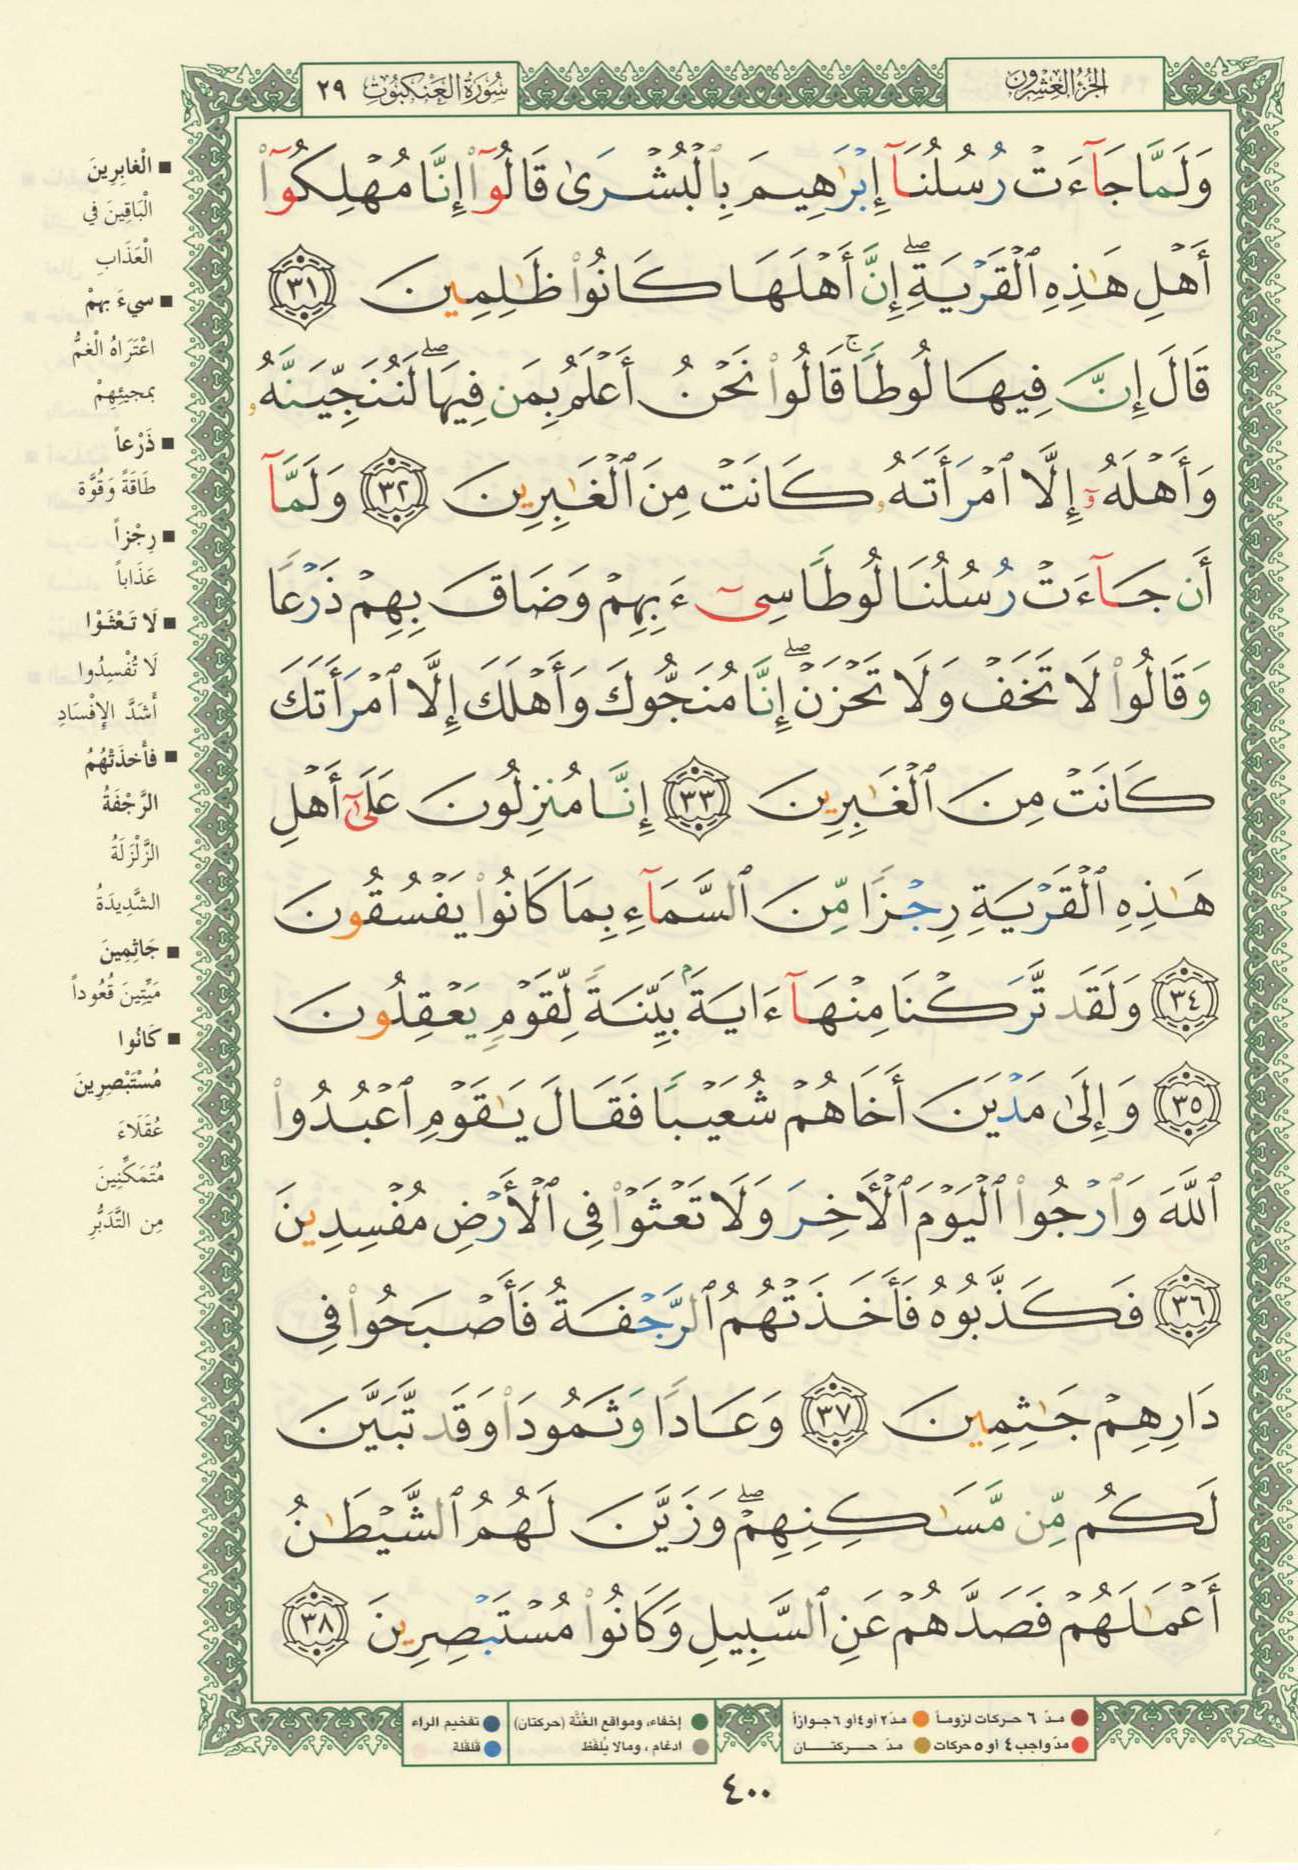 الجزء العشرون
سورة العنكبوت ٢٩
وَلَمَّا جَآءَتْ رُسُلُنَآ إِبْرَٰهِيمَ بِٱلْبُشْرَىٰ قَالُوٓا۟ إِنَّا مُهْلِكُوٓا۟
أَهْلِ هَٰذِهِ ٱلْقَرْيَةِ ۖ إِنَّ أَهْلَهَا كَانُوا۟ ظَٰلِمِينَ ٣١
قَالَ إِنَّ فِيهَا لُوطًا ۚ قَالُوا۟ نَحْنُ أَعْلَمُ بِمَن فِيهَا ۖ لَنُنَجِّيَنَّهُۥ
وَأَهْلَهُۥٓ إِلَّا ٱمْرَأَتَهُۥ كَانَتْ مِنَ ٱلْغَٰبِرِينَ ٣٢ وَلَمَّآ
أَن جَآءَتْ رُسُلُنَا لُوطًا سِىٓءَ بِهِمْ وَضَاقَ بِهِمْ ذَرْعًا
وَقَالُوا۟ لَا تَخَفْ وَلَا تَحْزَنْ ۖ إِنَّا مُنَجُّوكَ وَأَهْلَكَ إِلَّا ٱمْرَأَتَكَ
كَانَتْ مِنَ ٱلْغَٰبِرِينَ ٣٣ إِنَّا مُنزِلُونَ عَلَىٰٓ أَهْلِ
هَٰذِهِ ٱلْقَرْيَةِ رِجْزًا مِّنَ ٱلسَّمَآءِ بِمَا كَانُوا۟ يَفْسُقُونَ
٣٤ وَلَقَد تَّرَكْنَا مِنْهَآ ءَايَةًۢ بَيِّنَةً لِّقَوْمٍ يَعْقِلُونَ
٣٥ وَإِلَىٰ مَدْيَنَ أَخَاهُمْ شُعَيْبًا فَقَالَ يَٰقَوْمِ ٱعْبُدُوا۟
ٱللَّهَ وَٱرْجُوا۟ ٱلْيَوْمَ ٱلْأَخِرَ وَلَا تَعْثَوْا۟ فِى ٱلْأَرْضِ مُفْسِدِينَ
٣٦ فَكَذَّبُوهُ فَأَخَذَتْهُمُ ٱلرَّجْفَةُ فَأَصْبَحُوا۟ فِى
دَارِهِمْ جَٰثِمِينَ ٣٧ وَعَادًا وَثَمُودَا۟ وَقَد تَّبَيَّنَ
لَكُم مِّن مَّسَٰكِنِهِمْ ۖ وَزَيَّنَ لَهُمُ ٱلشَّيْطَٰنُ
أَعْمَٰلَهُمْ فَصَدَّهُمْ عَنِ ٱلسَّبِيلِ وَكَانُوا۟ مُسْتَبْصِرِينَ ٣٨
■ الْغابِرِينَ
الْبَاقِينَ في
الْعَذَابِ
■ سيءَ بهمْ
اعْتَرَاهُ الْغمُّ
بمجيئِهِمْ
■ ذَرْعاً
طَاقَةً وَقُوَّة
■ رِجْزاً
عَذَاباً
■ لَا تَعْثَوْا
لَا تُفْسِدُوا
أَشَدَّ الإِفْسَادِ
■ فأَخذَتْهُمُ
الرَّجْفَةُ
الزَّلْزَلَةُ
الشَّدِيدَةُ
■ جَاثِمِينَ
مَيِّتِينَ قُعُوداً
■ كَانُوا
مُسْتَبْصِرِينَ
عُقَلَاءَ
مُتَمَكِّنِينَ
مِن التَّدَبُّرِ
مدّ ٦ حركات لزوماً مدّ ٢ او ٤ أو ٦ جوازاً
مدّ واجب ٤ او ٥ حركات مدّ حركتان
إخفاء، ومواقع الغنَّة (حركتان) تفخيم الراء
ادغام، ومالا يُلفَظ قلقلة
٤٠٠